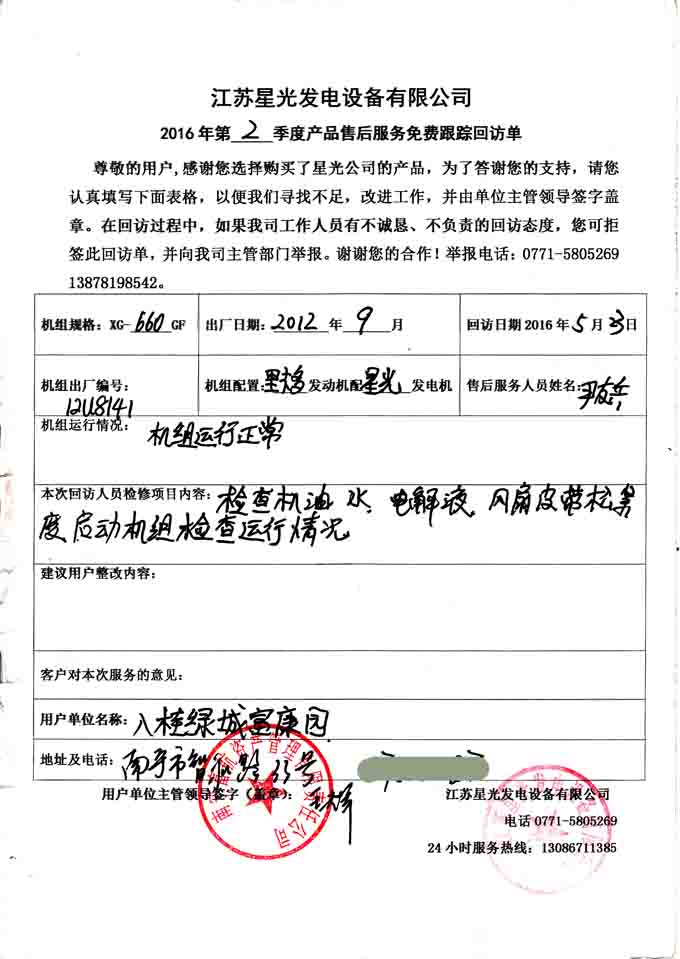 江苏星光发电设备有限公司
2016年第2季度产品售后服务免费跟踪回访单
尊敬的用户,感谢您选择购买了星光公司的产品，为了答谢您的支持，请您
认真填写下面表格，以便我们寻找不足，改进工作，并由单位主管领导签字盖
章。在回访过程中，如果我司工作人员有不诚恳、不负责的回访态度，您可拒
签此回访单，并向我司主管部门举报。谢谢您的合作！举报电话：0771-5805269
13878198542。
机组规格：XG-660GF 出厂日期：2012年9月 回访日期2016年5月23日
机组出厂编号： 机组配置： 发动机配星光发电机 售后服务人员姓名：
12U8141
机组运行情况：机组运行正常
本次回访人员检修项目内容：检查机油 水、电解液、风扇皮带松紧
度启动机组检查运行情况
建议用户整改内容：
客户对本次服务的意见：
用户单位名称：入桂绿城富康园
地址及电话：南宁市 号
用户单位主管领导签字（盖章）： 江苏星光发电设备有限公司
电话 0771-5805269
24小时服务热线：13086711385